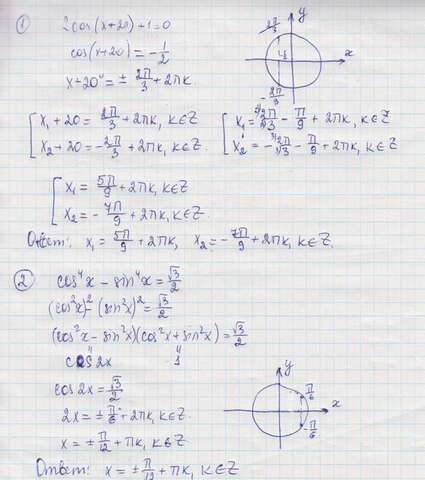 ① 2cos(x+20)+1=0
cos(x+20)=-1/2
x+20°=± 2π/3 + 2πk.
[ x₁+20= 2π/3 +2πk, k∈Z
x₂+20=-2π/3 +2πk, k∈Z.
[ x₁= ³⁾2π/3 - π/9 + 2πk, k∈Z
x₂=-³⁾2π/3 - π/9 +2πk, k∈Z.
[ x₁= 5π/9 +2πk, k∈Z
x₂=- 7π/9 +2πk, k∈Z.
Ответ: x₁= 5π/9 +2πk, x₂=-7π/9 +2πk, k∈Z.
y
x
2π/3
-2π/3
② cos⁴x - sin⁴x = √3/2
(cos²x)² - (sin²x)² = √3/2
(cos²x - sin²x)(cos²x + sin²x) = √3/2
" "
cos2x 1
cos 2x = √3/2
2x = ± π/6 + 2πk, k∈Z.
x = ± π/12 + πk, k∈Z
Ответ: x = ± π/12 + πk, k∈Z
y
x
π/6
-π/6